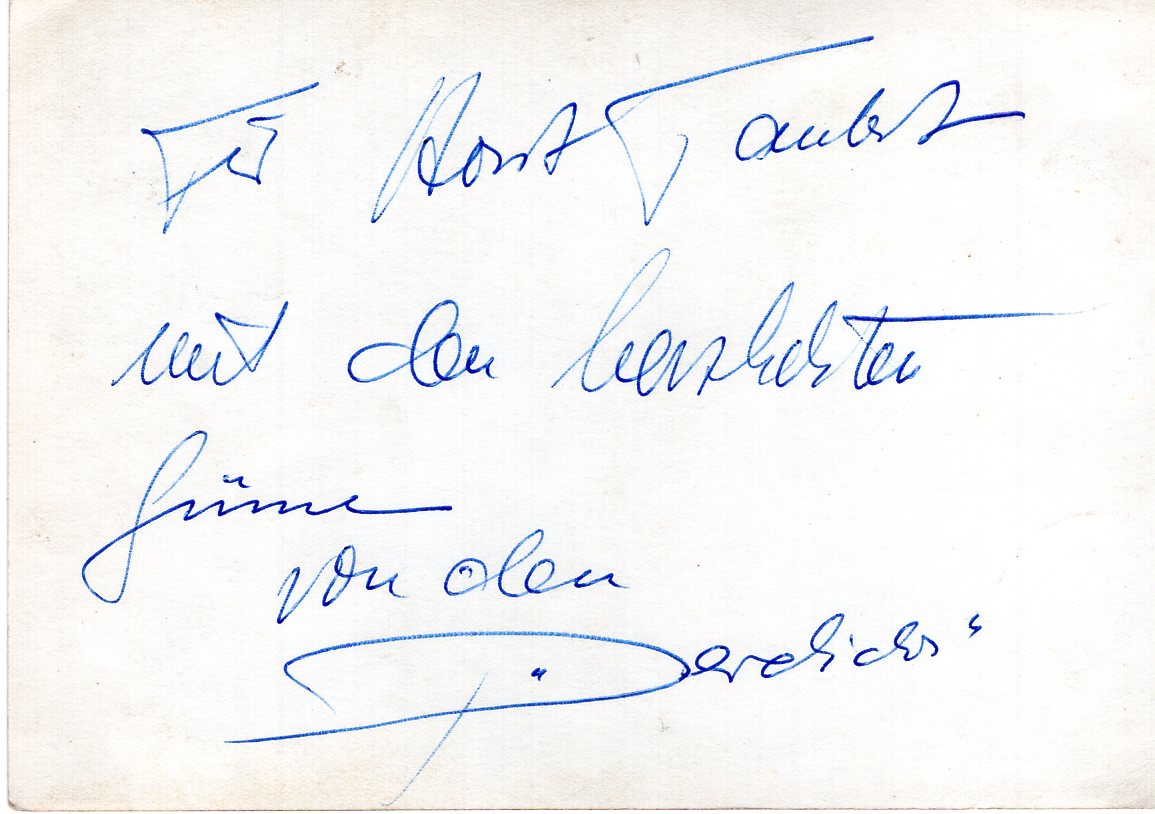 Für Horst Taubert
mit den herzlichsten
Grüßen
von den